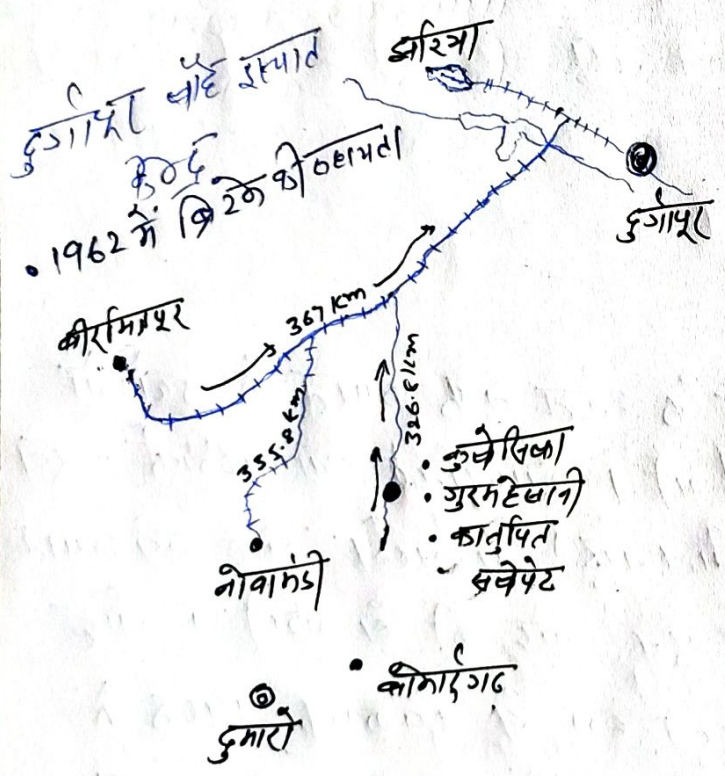 दुर्गापुर लौह इस्पात
केन्द्र
• 1962 में ब्रिटेन की सहायता
झरिया
दुर्गापूर
बीरमित्रपूर
367 Km
355.8 Km
326.8 Km
• गुरमहेसानी
नोवामंडी
• बोनाईगढ़